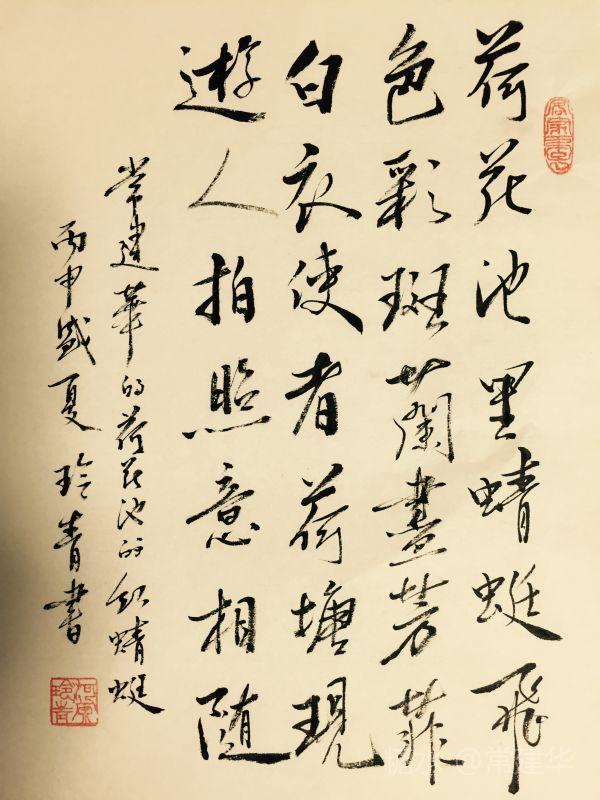 荷花池里蜻蜓飛
色彩斑蘭盡芳菲
白衣使者荷塘現
遊人拍照意相随
常建華的荷花池的红蜻蜓
丙申盛夏玲青書
@常建华